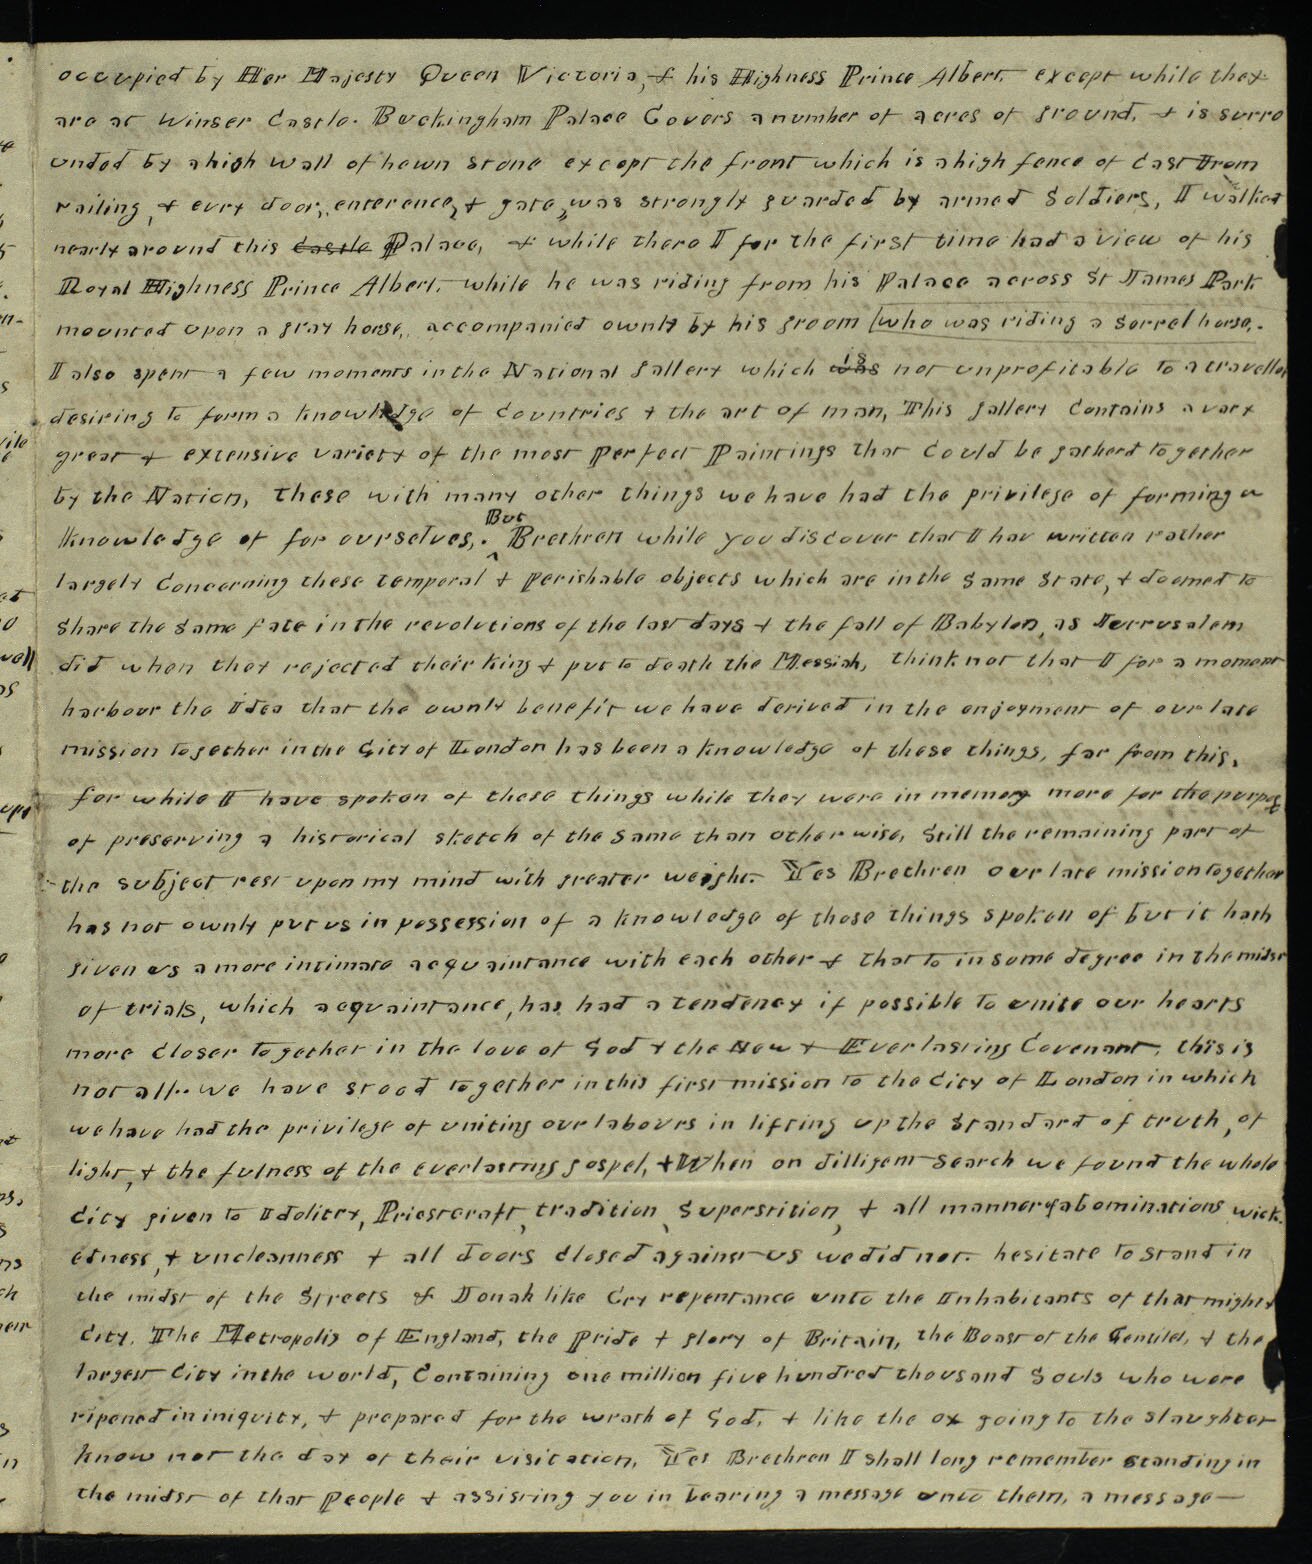 occupied by Her Majesty Queen Victoria, & his Highness Prince Albert except while they
are at Winser Castle. Buckingham Palace Covers a number of acres of ground, & is surro
unded by a high wall of hewn stone except the front which is a high fence of Cast Irom
railing, & evry door, enterence, & gate, was strongly guarded by armed Soldiers, I walked
nearly around this Castle Palace, & while there I for the first time had a view of his
Royal Highness Prince Albert, while he was riding from his Palace across St James Park
mounted upon a gray horse, accompanied ownly by his groom who was riding a sorrel horse,.
I also spent a few moments in the National gallery which was is not unprofitable to a traveller
desiring to form a knowledge of Countries & the art of man, This gallery Contains a vary
great & extensive variety of the most perfect Paintings that Could be gatherd together
by the Nation, These with many other things we have had the privilege of forming a
knowledge of for ourselves,. But Brethren while you discover that I hav written rather
largely Concerning these temporal & perishable objects which are in the same state, & doomed to
share the same fate in the revolutions of the last days & the fall of Babylon, as Jerrusalem
did when they rejected their king & put to death the Messiah, think not that I for a moment
harbour the Idea that the ownly benefit we have derived in the enjoyment of our late
mission together in the City of London has been a knowledge of these things, far from this,
for while I have spoken of these things while they were in memory more for the purpos
of preserving a historical sketch of the same than other wise, Still the remaining part of
the subject rest upon my mind with greater weight. Yes Brethren our late mission together
has not ownly put us in possession of a knowledge of those things spoken of but it hath
given us a more intimate acquaintance with each other & that to in some degree in the midst
of trials, which acquaintance, has had a tendency if possible to unite our hearts
more closer together in the love of God & the New & Everlasting Covenant, this is
not all.. we have stood together in this first mission to the City of London in which
we have had the privilege of uniting our labours in lifting up the Standard of truth, of
light, & the fulness of the everlasting gospel, & When on dilligent search we found the whole
City given to Idolitry, Priestcraft, tradition, Superstition, & all manner of abominations wick-
edness, & uncleanness & all doors closed against us we did not hesitate to stand in
the midst of the Streets & Jonah like Cry repentance unto the Inhabitants of that mighty
City. The Metropolis of England, the Pride & glory of Britain, the Boast of the Gentiles, & the
largest City in the world, Containing one million five hundred thousand Souls who were
ripened in iniquity, & prepared for the wrath of God, & like the ox going to the slaughter
know not the day of their visitation, Yes Brethren I shall long remember standing in
the midst of that People & assisting you in bearing a message unto them, a message